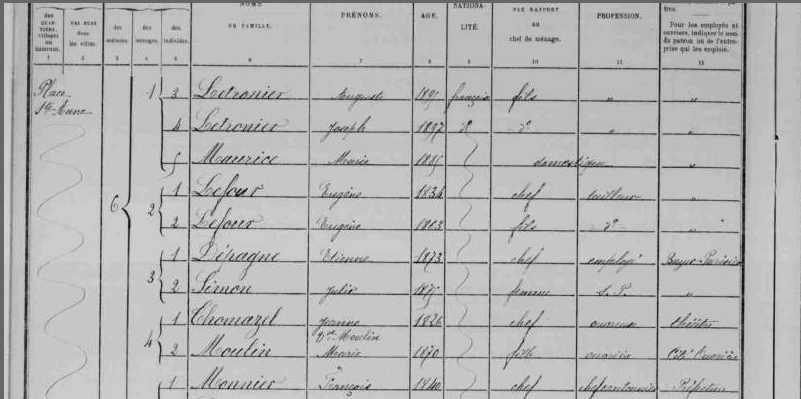 des QUARTIERS, villages ou hameaux. DES RUES dans les villes. des maisons. des ménages. des individus. NOMS DE FAMILLE. PRÉNOMS. AGE. NATIONALITÉ. PAR RAPPORT au chef de ménage. PROFESSION. Pour les employés et ouvriers, indiquer le nom du patron ou de l'entreprise qui les emploie.
1 2 3 4 5 6 7 8 9 10 11 12
Place 1 3 Letronier Auguste 1891 français fils " "
Ste Anne 4 Letronier Joseph 1897 do do " "
5 Maurice Marie 1885 domestique "
6 2 1 Lefour Eugène 1834 chef tailleur "
2 Lefour Eugène 1863 fils do "
3 1 Détragne Etienne 1873 chef employé
2 Simon Julie 1875 femme S. P. "
4 1 Chomazel Jeanne 1826 chef
Vve Moulin
2 Moulin Marie 1870 fille ouvrière
1 Monnier François 1840 chef chef cantonnier Préfecture